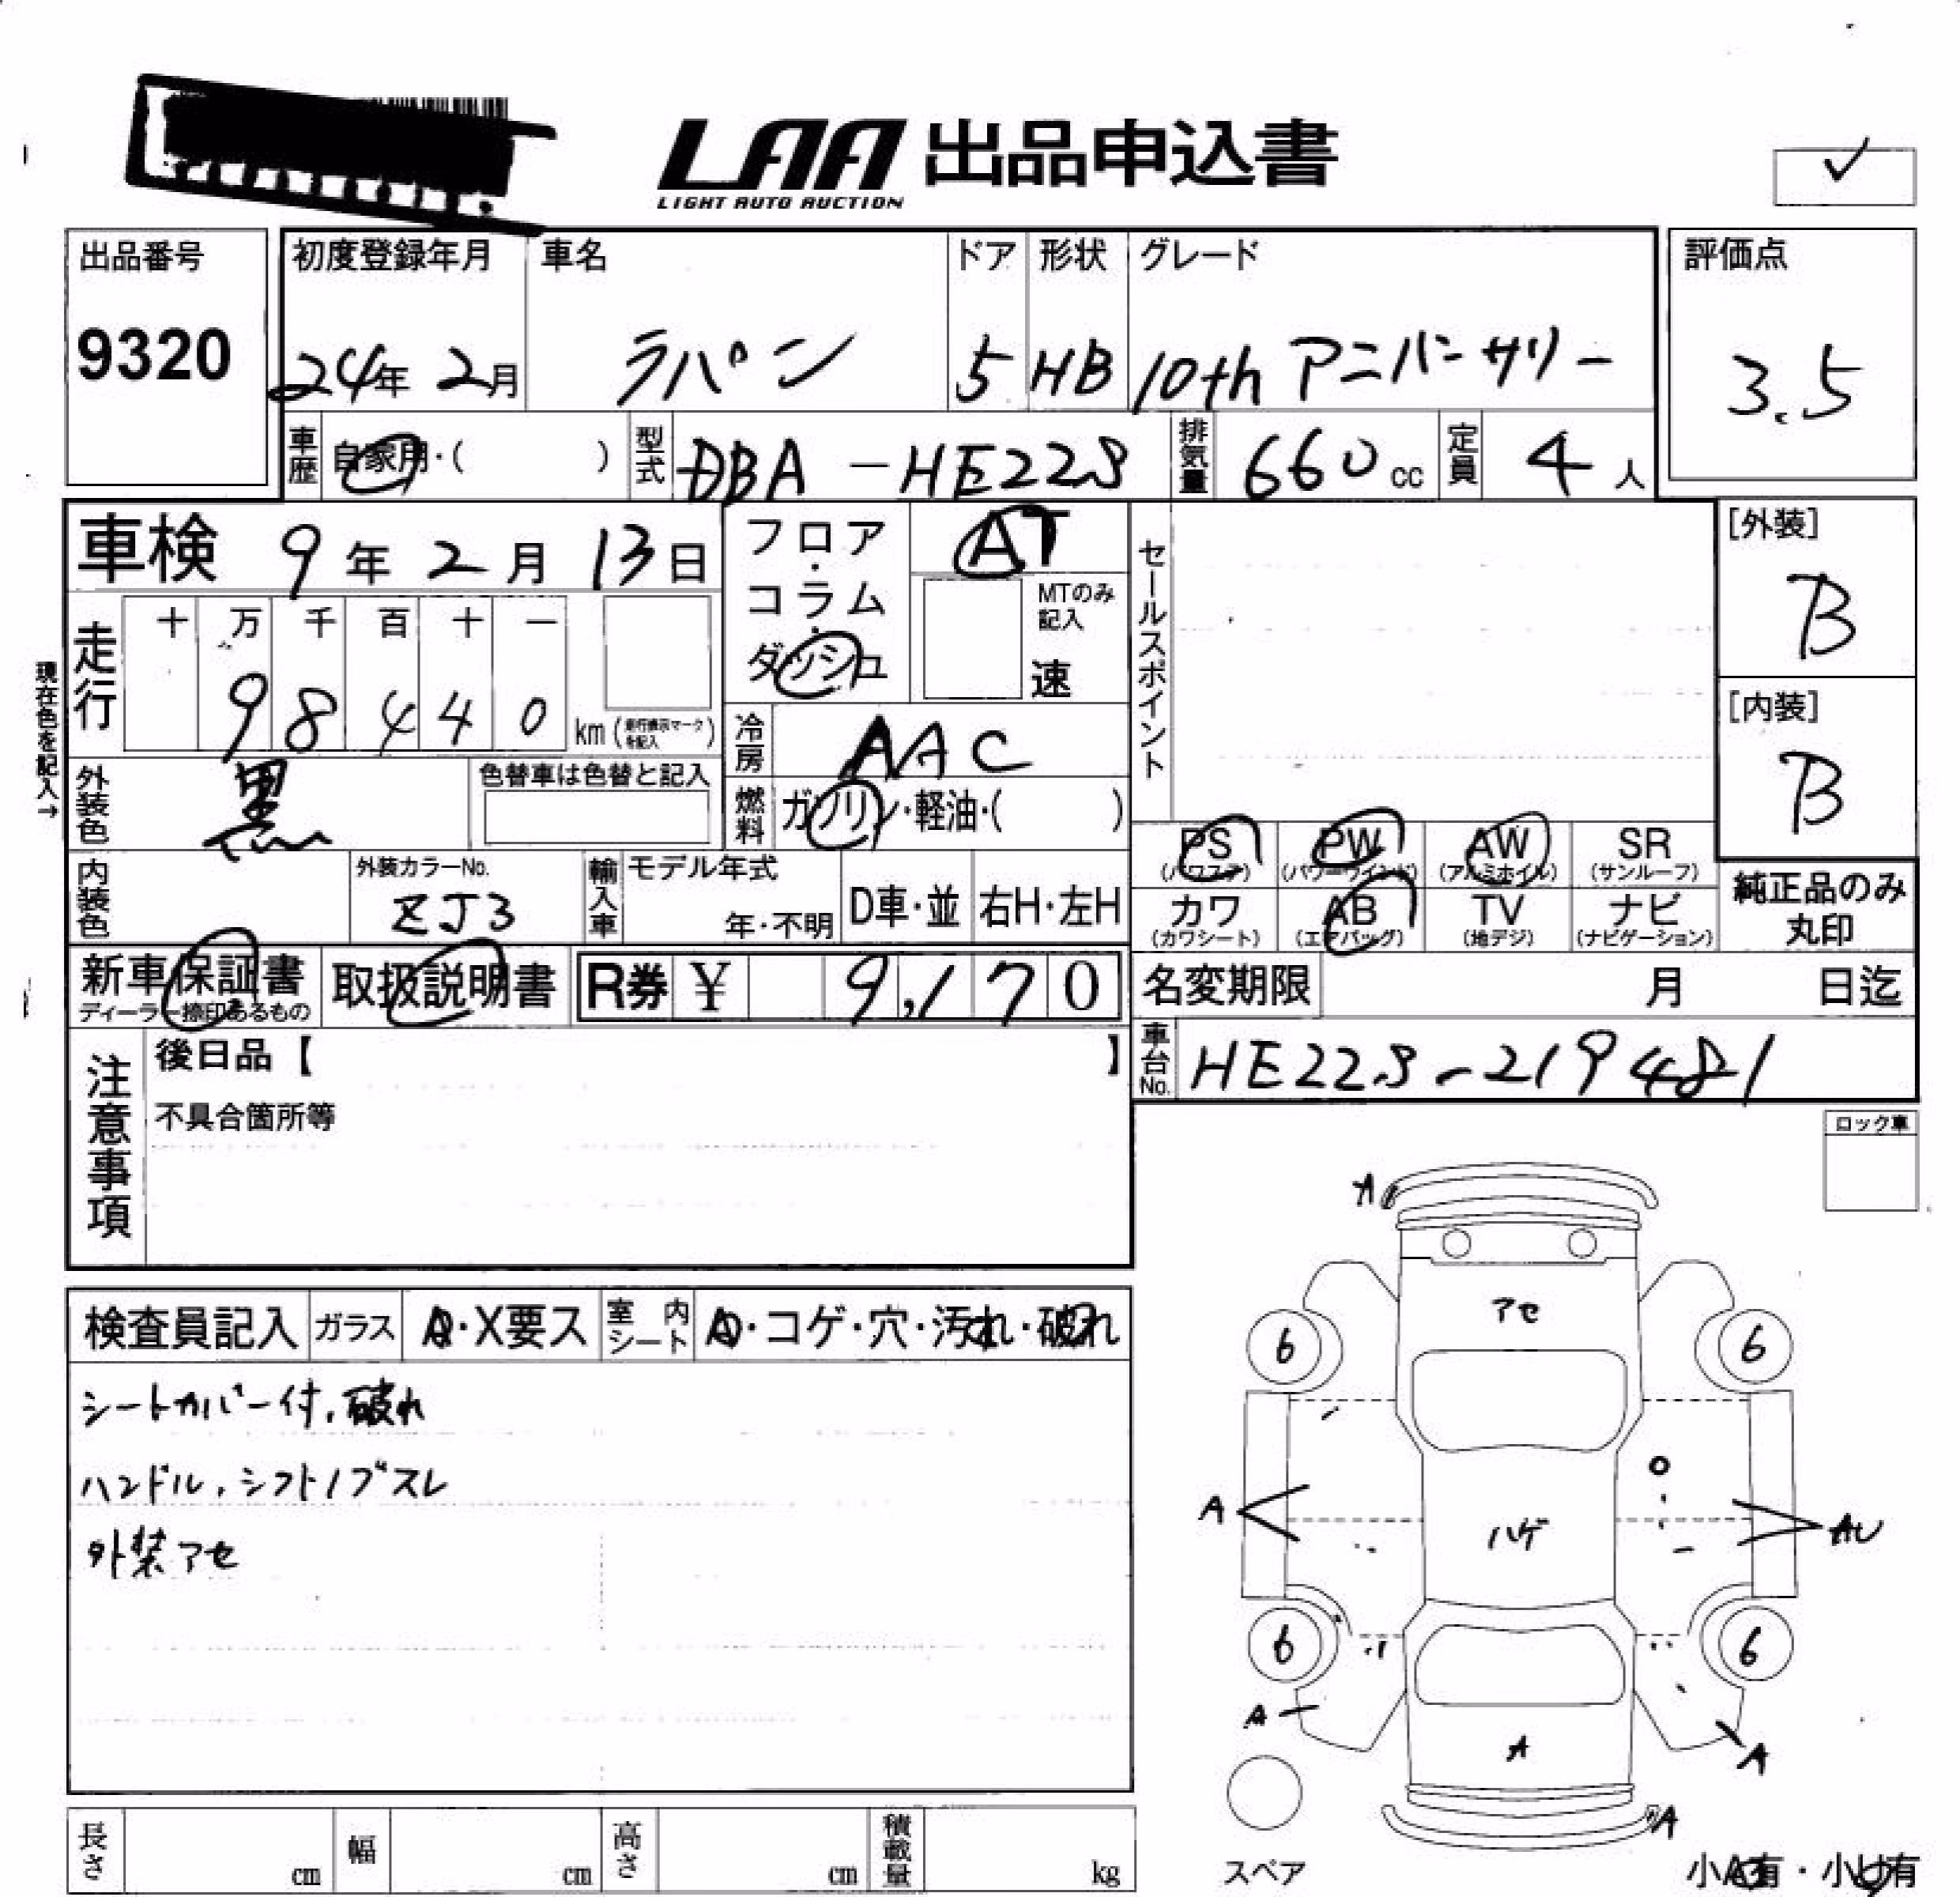 LAA 出品申込書
LIGHT AUTO AUCTION
✓
出品番号 初度登録年月 車名 ドア 形状 グレード 評価点
9320 24年 2月 ラパン 5 HB 10th アニバーサリー 3.5
車歴 自家用・( ) 型式 DBA-HE22S 排気量 660cc 定員 4人
車検 9年 2月 13日 フロア・コラム・ダッシュ AT セールスポイント [外装]
B
MTのみ記入
速
走行 十 万 千 百 十 一
98440 km (走行表示マークを記入)
[内装]
B
現在色を記入→
冷房 AAC
外装色 黒 色替車は色替と記入 燃料 ガソリン・軽油・( )
PS (パワステ) PW (パワーウインド) AW (アルミホイル) SR (サンルーフ)
内装色 外装カラーNo. ZJ3 輸入車 モデル年式 年・不明 D車・並 右H・左H
カワ (カワシート) AB (エアバッグ) TV (地デジ) ナビ (ナビゲーション) 純正品のみ丸印
新車保証書 取扱説明書 R券 ¥ 9,170 名変期限 月 日迄
ディーラー捺印あるもの
車台No. HE22S-219481
注意事項 後日品【 】
不具合箇所等
ロック車
検査員記入 ガラス A・X要ス 室内シート A・コゲ・穴・汚れ・破れ
シートカバー付,破れ
ハンドル,シフトノブスレ
外装アセ
A
アセ
6 6
A ハゲ AU
6 6
A A A
A
スペア
小A有・小U有
長さ cm 幅 cm 高さ cm 積載量 kg